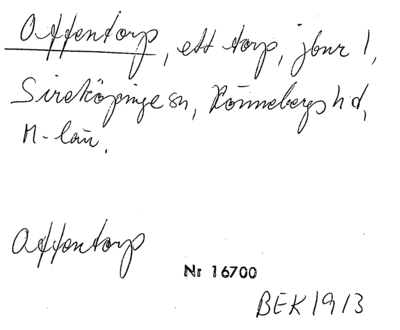 Offentorp, ett torp, jbnr 1,
Sireköpinge sn, Rönnebergs hd,
M-län.
Offentorp
Nr 16700
BEK 1913